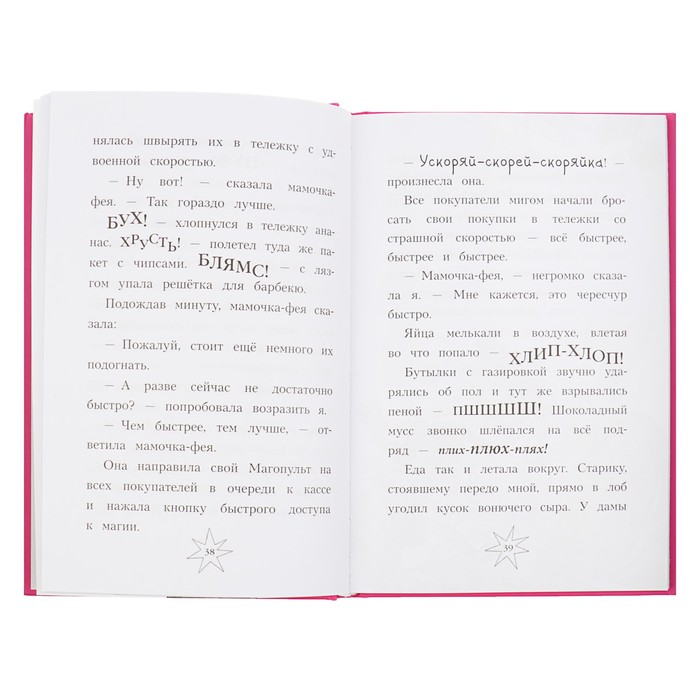 нялась швырять их в тележку с уд-
военной скоростью.
— Ну вот! — сказала мамочка-
фея. — Так гораздо лучше.
БУХ! — хлопнулся в тележку ана-
нас. ХРУСТЬ! — полетел туда же па-
кет с чипсами. БЛЯМС! — с ляз-
гом упала решётка для барбекю.
Подождав минуту, мамочка-фея ска-
зала:
— Пожалуй, стоит ещё немного их
подогнать.
— А разве сейчас не достаточно
быстро? — попробовала возразить я.
— Чем быстрее, тем лучше, — от-
ветила мамочка-фея.
Она направила свой Магопульт на
всех покупателей в очереди к кассе
и нажала кнопку быстрого доступа
к магии.
38
— Ускоряй-скорей-скоряйка! —
произнесла она.
Все покупатели мигом начали бро-
сать свои покупки в тележки со
страшной скоростью — всё быстрее,
быстрее и быстрее.
— Мамочка-фея, — негромко сказа-
ла я. — Мне кажется, это чересчур
быстро.
Яйца мелькали в воздухе, влетая
во что попало — ХЛИП-ХЛОП!
Бутылки с газировкой звучно уда-
рялись об пол и тут же взрывались
пеной — ПШШШШ! Шоколадный
мусс звонко шлёпался на всё под-
ряд — плих-плюх-плях!
Еда так и летала вокруг. Старику,
стоявшему передо мной, прямо в лоб
угодил кусок вонючего сыра. У дамы
39